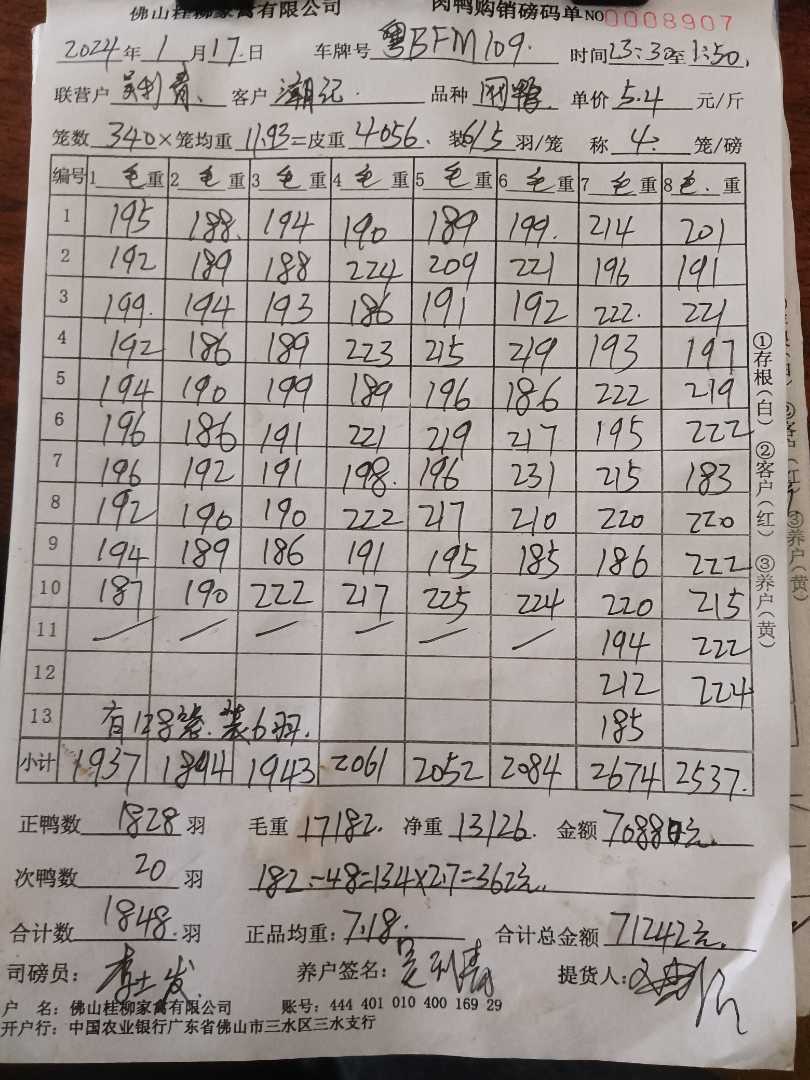 佛山桂柳家禽有限公司 肉鸭购销磅码单 NO 0008907
2024年1月17日 车牌号 粤BFM109. 时间23:30至1:50.
联营户 客户 潮记 品种 单价 5.4 元/斤
笼数 340×笼均重 11.93=皮重 4056. 装6/5羽/笼 称 4. 笼/磅
编号 1毛重 2毛重 3毛重 4毛重 5毛重 6毛重 7毛重 8毛.重
1 195 188. 194 190 189 199. 214 201
2 192 189 188 224 209 221 196 191
3 199. 194 193 186 191 192 222. 221
4 192 186 189 223 215 219 193 197
5 194 190 199 189 196 186 222 219
6 196 186 191 221 219 217 195 222
7 196 192 191 198. 196 231 215 183
8 192 190 190 222 217 210 220 220
9 194 189 186 191 195 185 186 222
10 187 190 222 217 225 224 220 215
11 194 222
12 212 224
13 有128笼.装6羽. 185
小计 1937 1894 1943 2061 2052 2084 2674 2537.
正鸭数 1828 羽 毛重 17182. 净重 13126. 金额 70880元.
次鸭数 20 羽 182-48=134×2.7=362元.
合计数 1848. 羽 正品均重: 7.18. 合计总金额 71242元.
司磅员: 养户签名: 提货人:
户 名: 佛山桂柳家禽有限公司 账号: 444 401 010 400 169 29
开户行: 中国农业银行广东省佛山市三水区三水支行
①存根(白) ②客户(红) ③养户(黄)
③养户(黄)